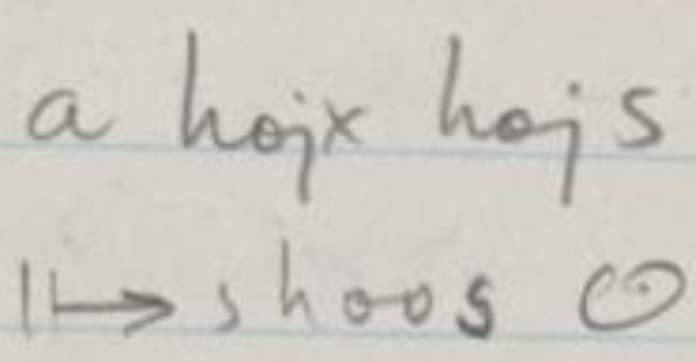 a hojx hojs
|↦ shoos ⊙